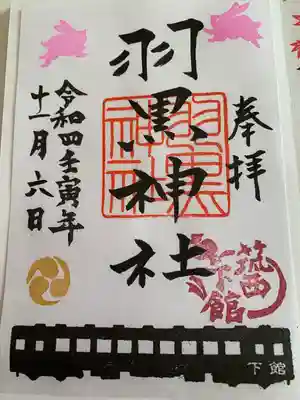 奉拝
羽黒神社
羽黒神社
令和四壬寅年
十一月六日
筑西
下館
下館